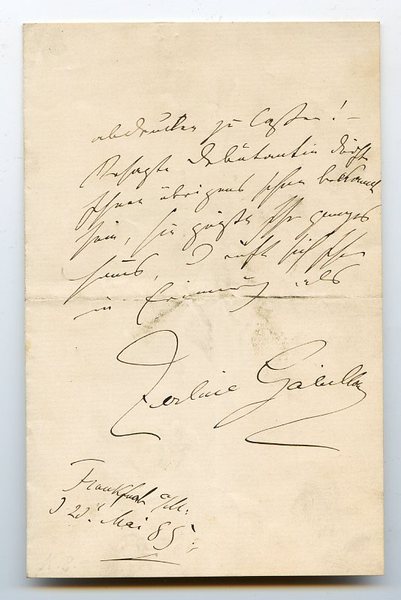 abdrucken zu lassen! –
Besagte Debütantin dürfte
Ihnen übrigens schon bekannt
sein, sie
Haus, ruft sich Ihnen
in Erinnerung als
Zerline Gabillon
Frankfurt a/M.
d 20. Mai 85.